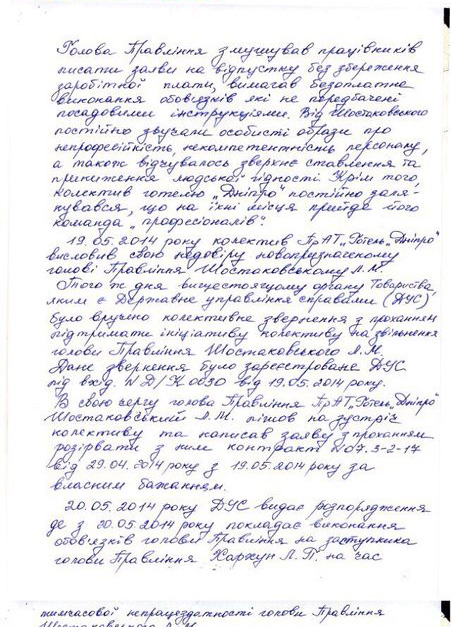 Голова Правління змушував працівників
писати заяви на відпустку без збереження
заробітної плати, вимагав безоплатне
виконання обов'язків які не передбачені
посадовими інструкціями. Від Шостаковського
постійно звучали особисті образи про
непрофесійність, некомпетентність персоналу,
а також відчувалось зверхнє ставлення та
приниження людської гідності. Крім того,
колектив готелю „Дніпро" постійно заля-
кувався, що на їхні місця прийде його
команда „професіоналів".
19.05.2014 року колектив ПрАТ „Готель „Дніпро"
висловив свою недовіру новопризначеному
голові Правління Шостаковському Л.М.
Того ж дня вищестоящому органу Товариства,
яким є Державне управління справами (ДУС)
було вручено колективне звернення з проханням
підтримати ініціативу колективу на звільнення
голови Правління Шостаковського Л.М.
Дане звернення було зареєстроване ДУС
під вхід. N Д/К 0030 від 19.05.2014 року.
В свою чергу голова Правління ПрАТ „Готель „Дніпро"
Шостаковський Л.М. пішов на зустріч
колективу та написав заяву з проханням
розірвати з ним контракт N 07.3-2-17
від 29.04.2014 року з 19.05.2014 року за
власним бажанням.
20.05.2014 року ДУС видає розпорядження
де з 20.05.2014 року покладає виконання
обов'язків голови Правління на заступника
голови Правління Хархун Л.П. на час
тимчасової непрацездатності голови Правління
Шостаковського Л.М.